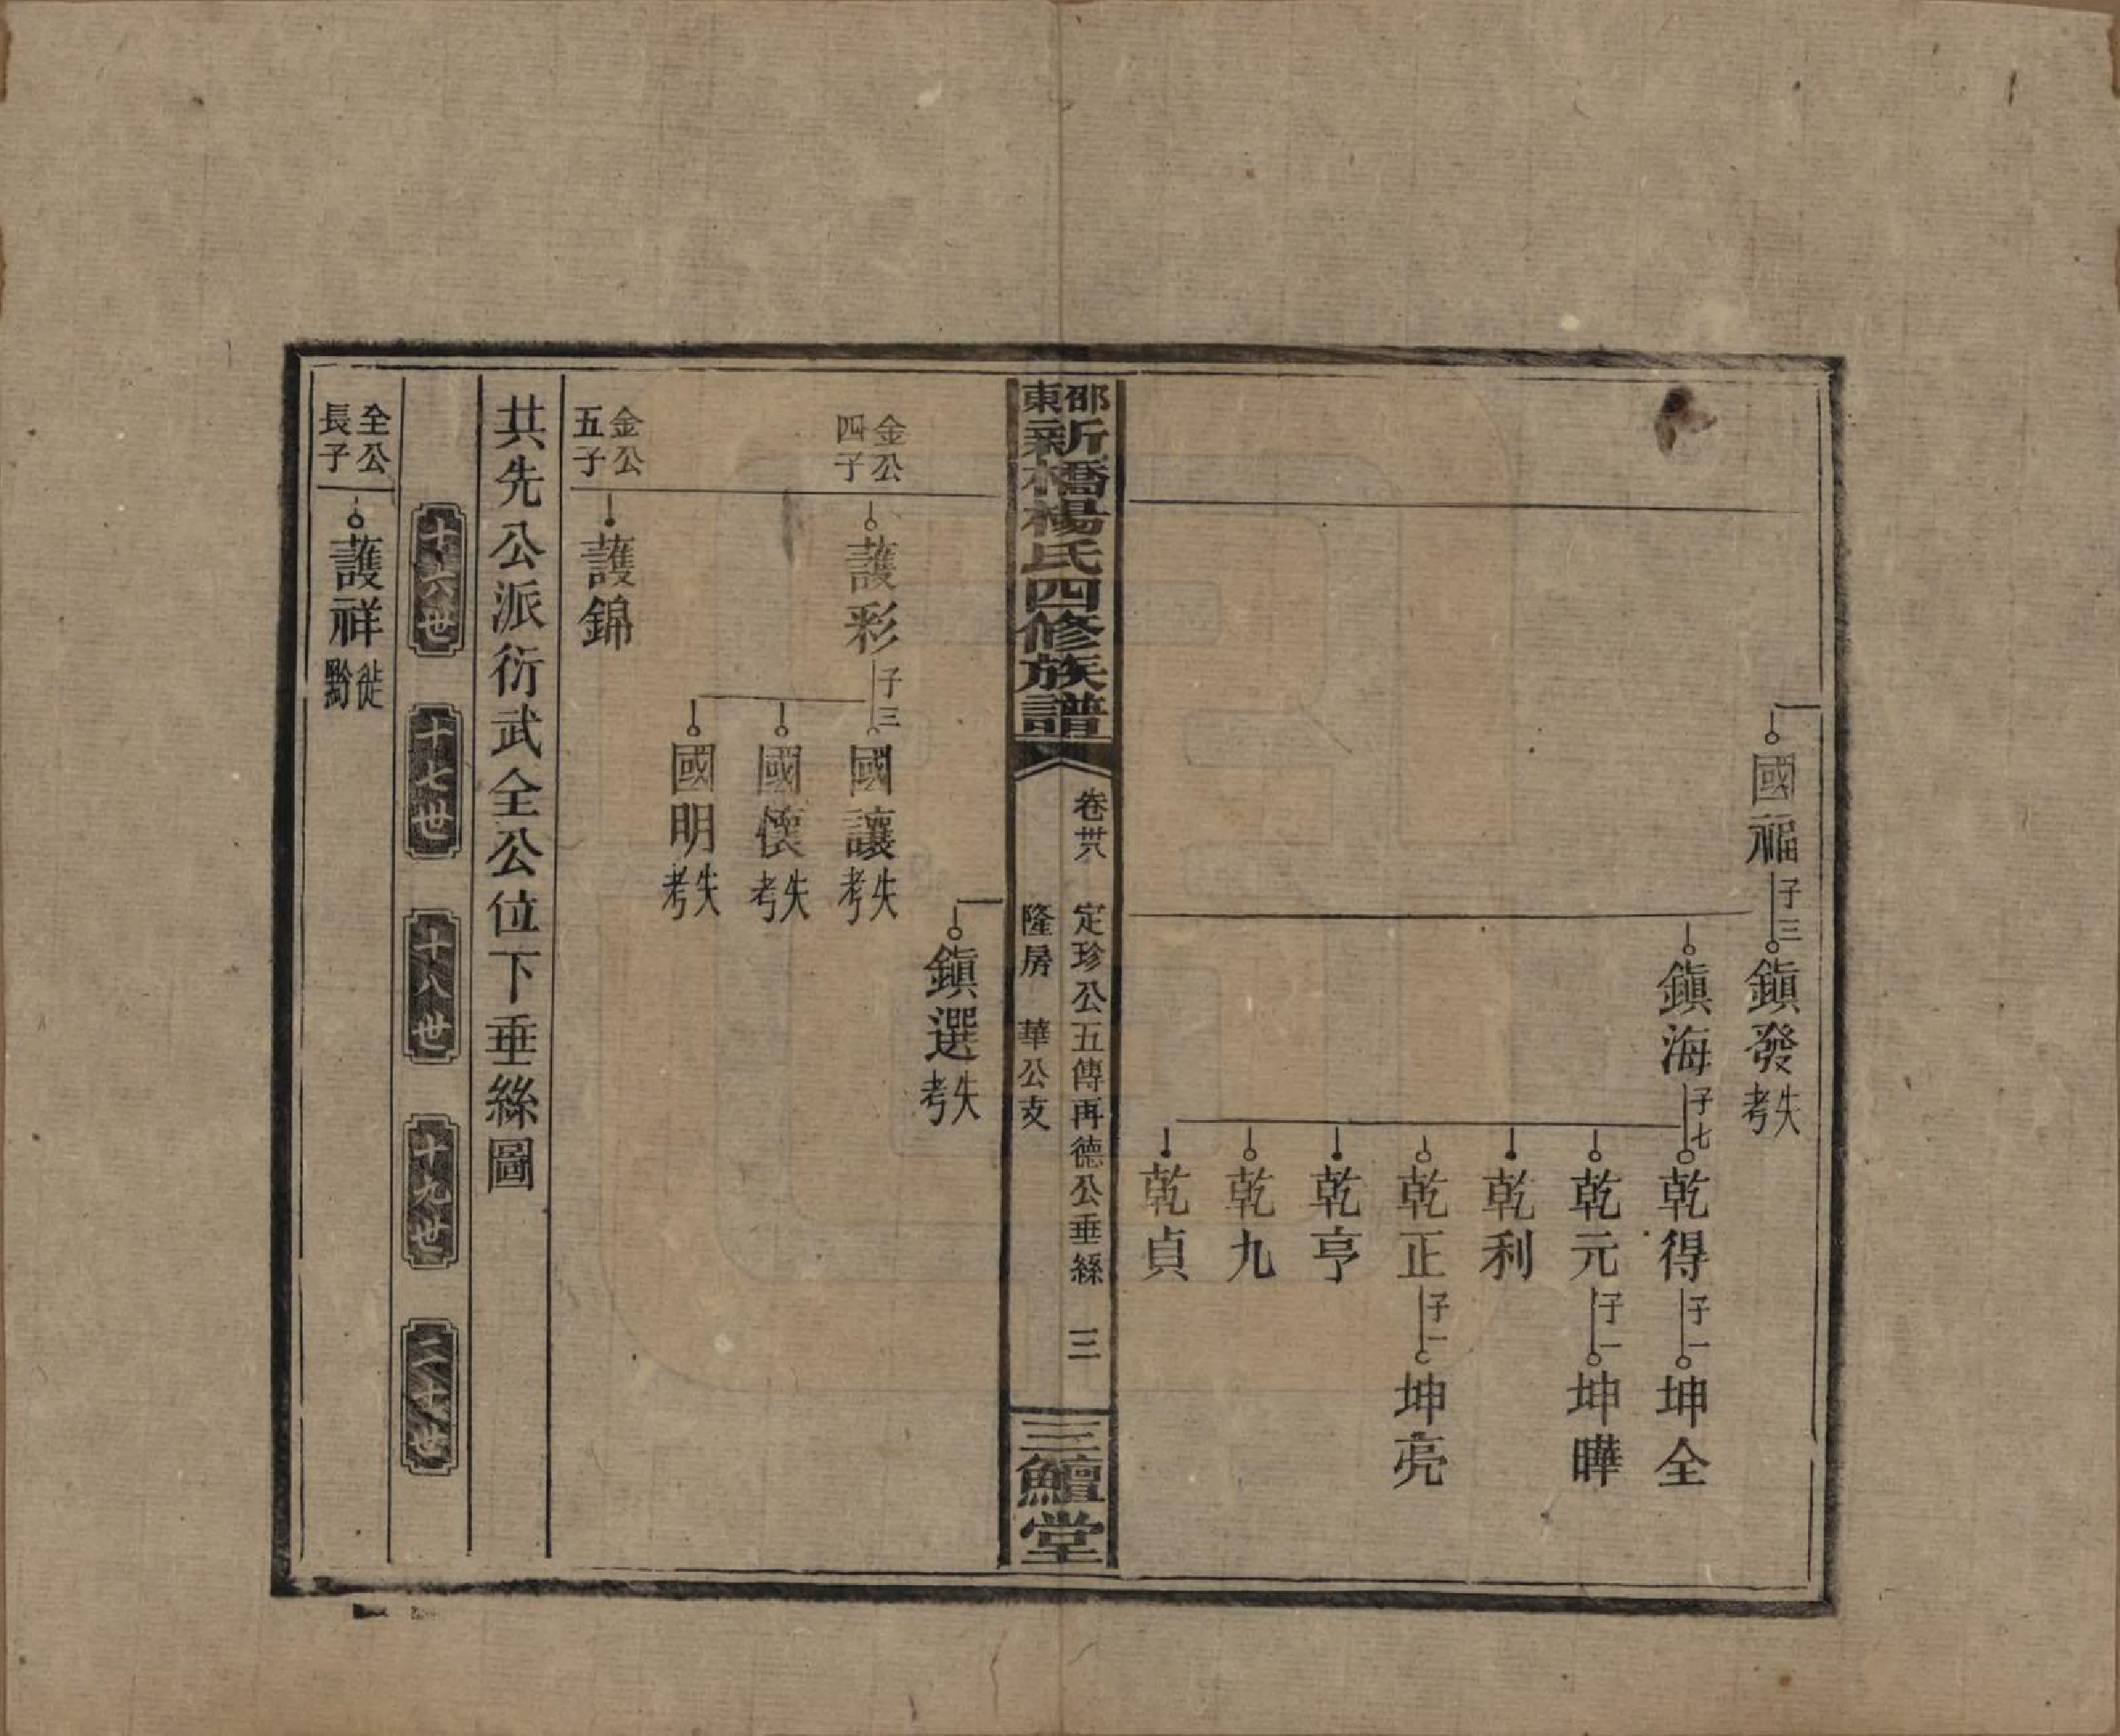 國福 子三
鎭發 失考
鎭海 子七
乾得 子一 坤全
乾元 子一 坤曄
乾利
乾正 子一 坤亮
乾亨
乾九
乾貞
邵東新橋楊氏四修族譜
卷卅八
定珍公五傳再德公垂絲 三
隆房 華公支
三鱣堂
鎭選 失考
金公四子
護彩 子三
國讓 失考
國懷 失考
國明 失考
金公五子
護錦
共先公派衍武全公位下垂絲圖
十六世 十七世 十八世 十九世 二十世
全公長子
護祥 徙黔